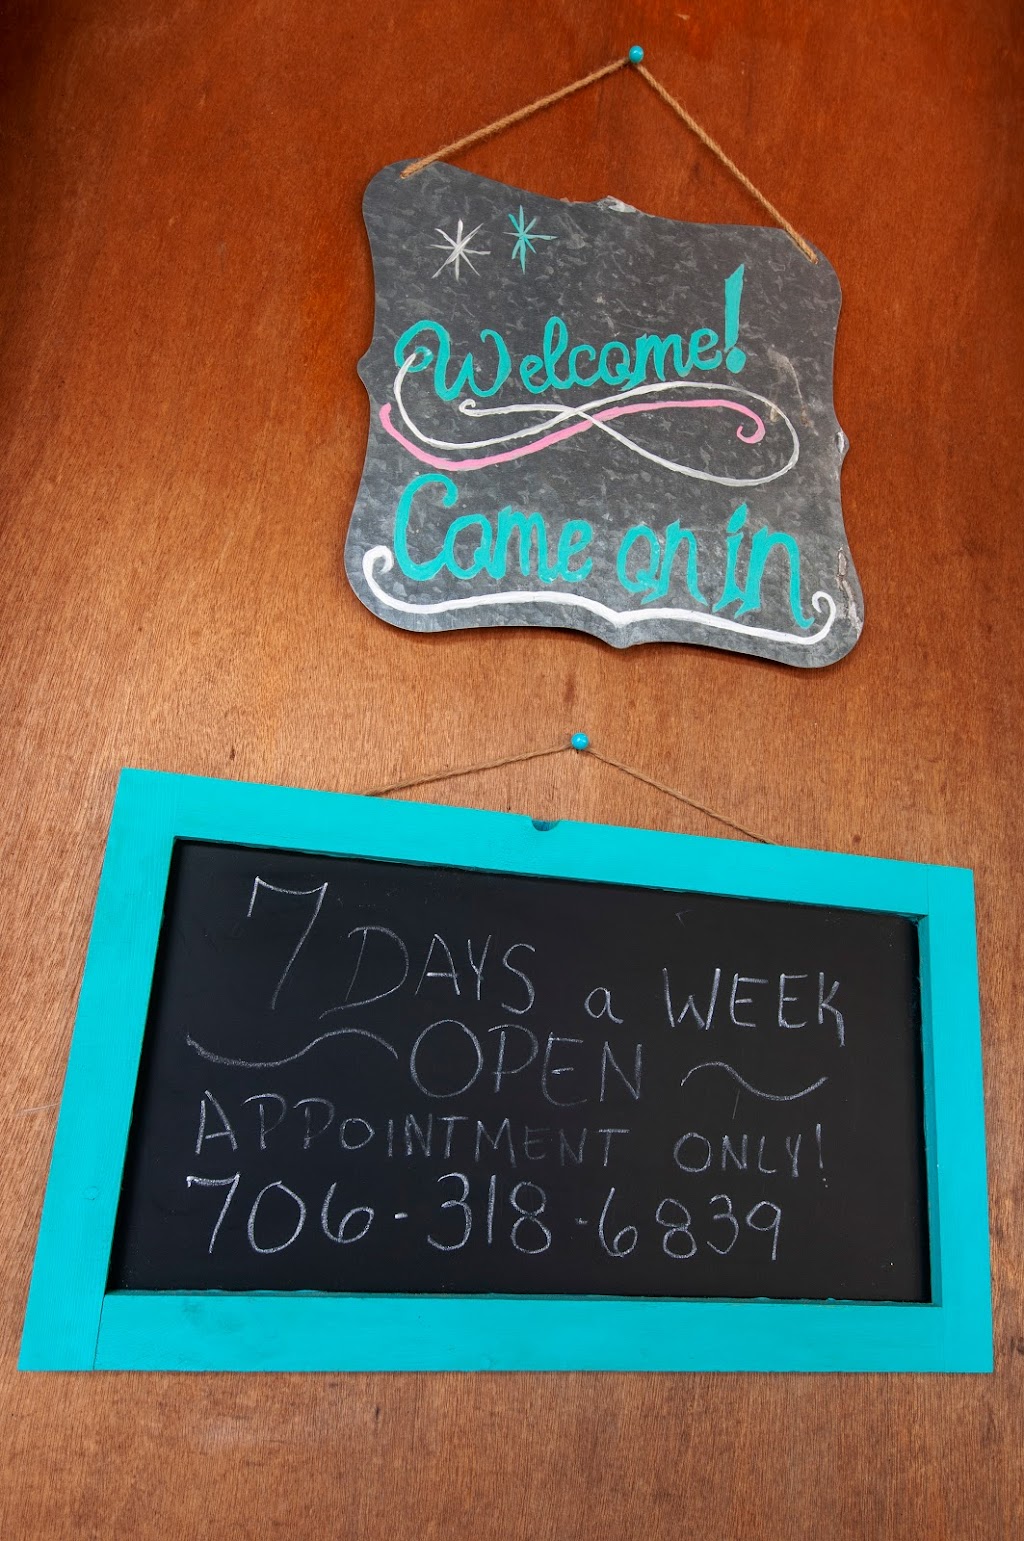 Welcome!
Come on in
7 DAYS a WEEK
OPEN
APPOINTMENT ONLY!
706-318-6839